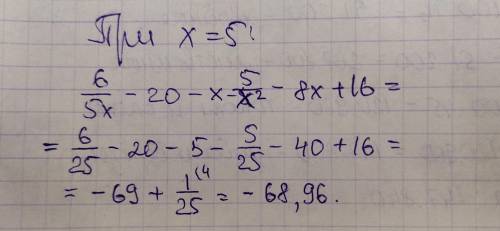 При x = 5:
6/5x - 20 - x - 5/x² - 8x + 16 =
= 6/25 - 20 - 5 - 5/25 - 40 + 16 =
= -69 + 1/25 = -68,96.